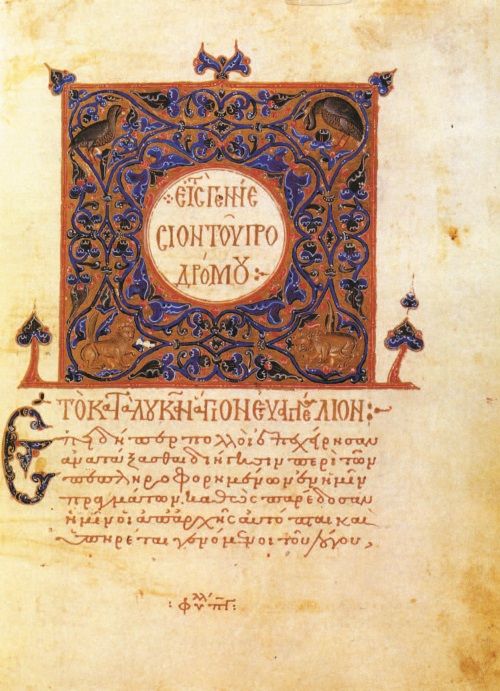 ΕΙΣ ΓΕΝΝΕ
ΣΙΟΝ ΤΟΥ ΠΡΟ
ΔΡΟΜΟΥ :~
ΤΟ ΚΑΤΑ ΛΟΥΚΑΝ ΑΓΙΟΝ ΕΥΑΓΓΕΛΙΟΝ :~
Ἐπειδήπερ πολλοὶ ἐπεχείρησαν
ἀνατάξασθαι διήγησιν περὶ τῶν
πεπληροφορημένων ἐν ἡμῖν
πραγμάτων, καθὼς παρέδοσαν
ἡμῖν οἱ ἀπαρχῆς αὐτόπται καὶ
ὑπηρέται γενόμενοι τοῦ λόγου,